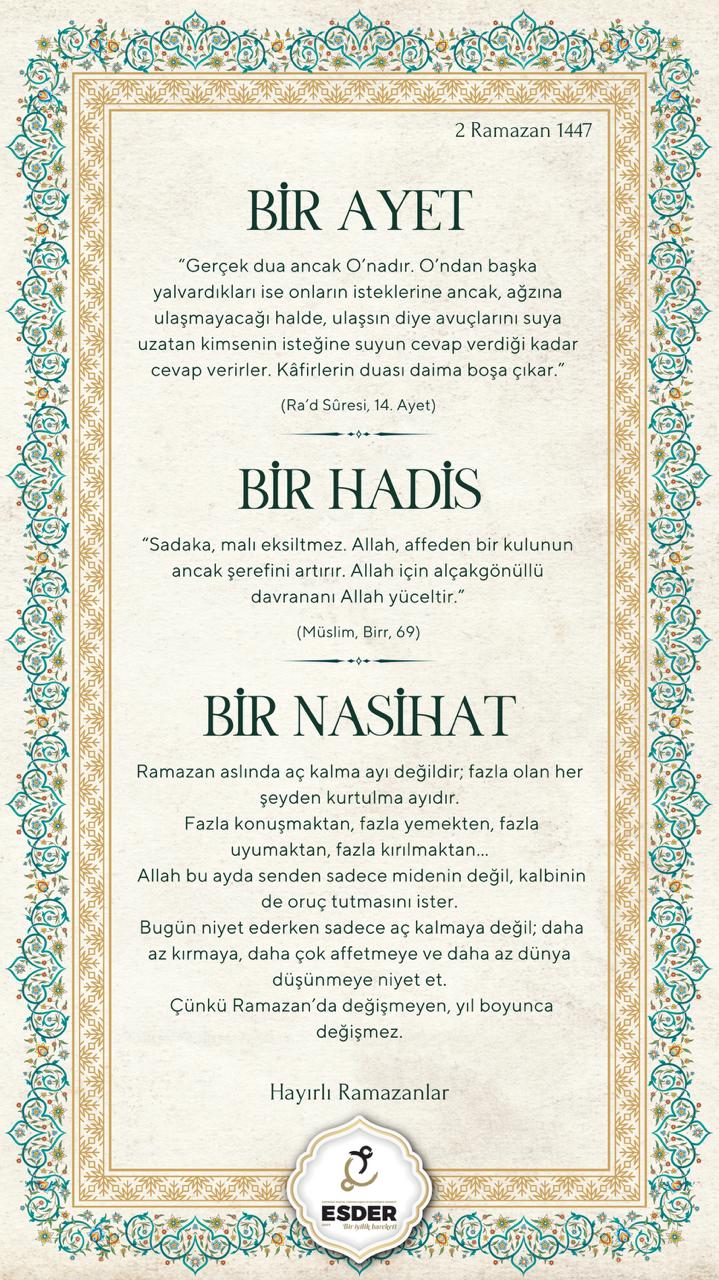 2 Ramazan 1447
BİR AYET
“Gerçek dua ancak O’nadır. O’ndan başka
yalvardıkları ise onların isteklerine ancak, ağzına
ulaşmayacağı halde, ulaşsın diye avuçlarını suya
uzatan kimsenin isteğine suyun cevap verdiği kadar
cevap verirler. Kâfirlerin duası daima boşa çıkar.”
(Ra’d Sûresi, 14. Ayet)
BİR HADİS
“Sadaka, malı eksiltmez. Allah, affeden bir kulunun
ancak şerefini artırır. Allah için alçakgönüllü
davrananı Allah yüceltir.”
(Müslim, Birr, 69)
BİR NASİHAT
Ramazan aslında aç kalma ayı değildir; fazla olan her
şeyden kurtulma ayıdır.
Fazla konuşmaktan, fazla yemekten, fazla
uyumaktan, fazla kırılmaktan...
Allah bu ayda senden sadece midenin değil, kalbinin
de oruç tutmasını ister.
Bugün niyet ederken sadece aç kalmaya değil; daha
az kırmaya, daha çok affetmeye ve daha az dünya
düşünmeye niyet et.
Çünkü Ramazan’da değişmeyen, yıl boyunca
değişmez.
Hayırlı Ramazanlar
ESDER
Bir iyilik hareketi